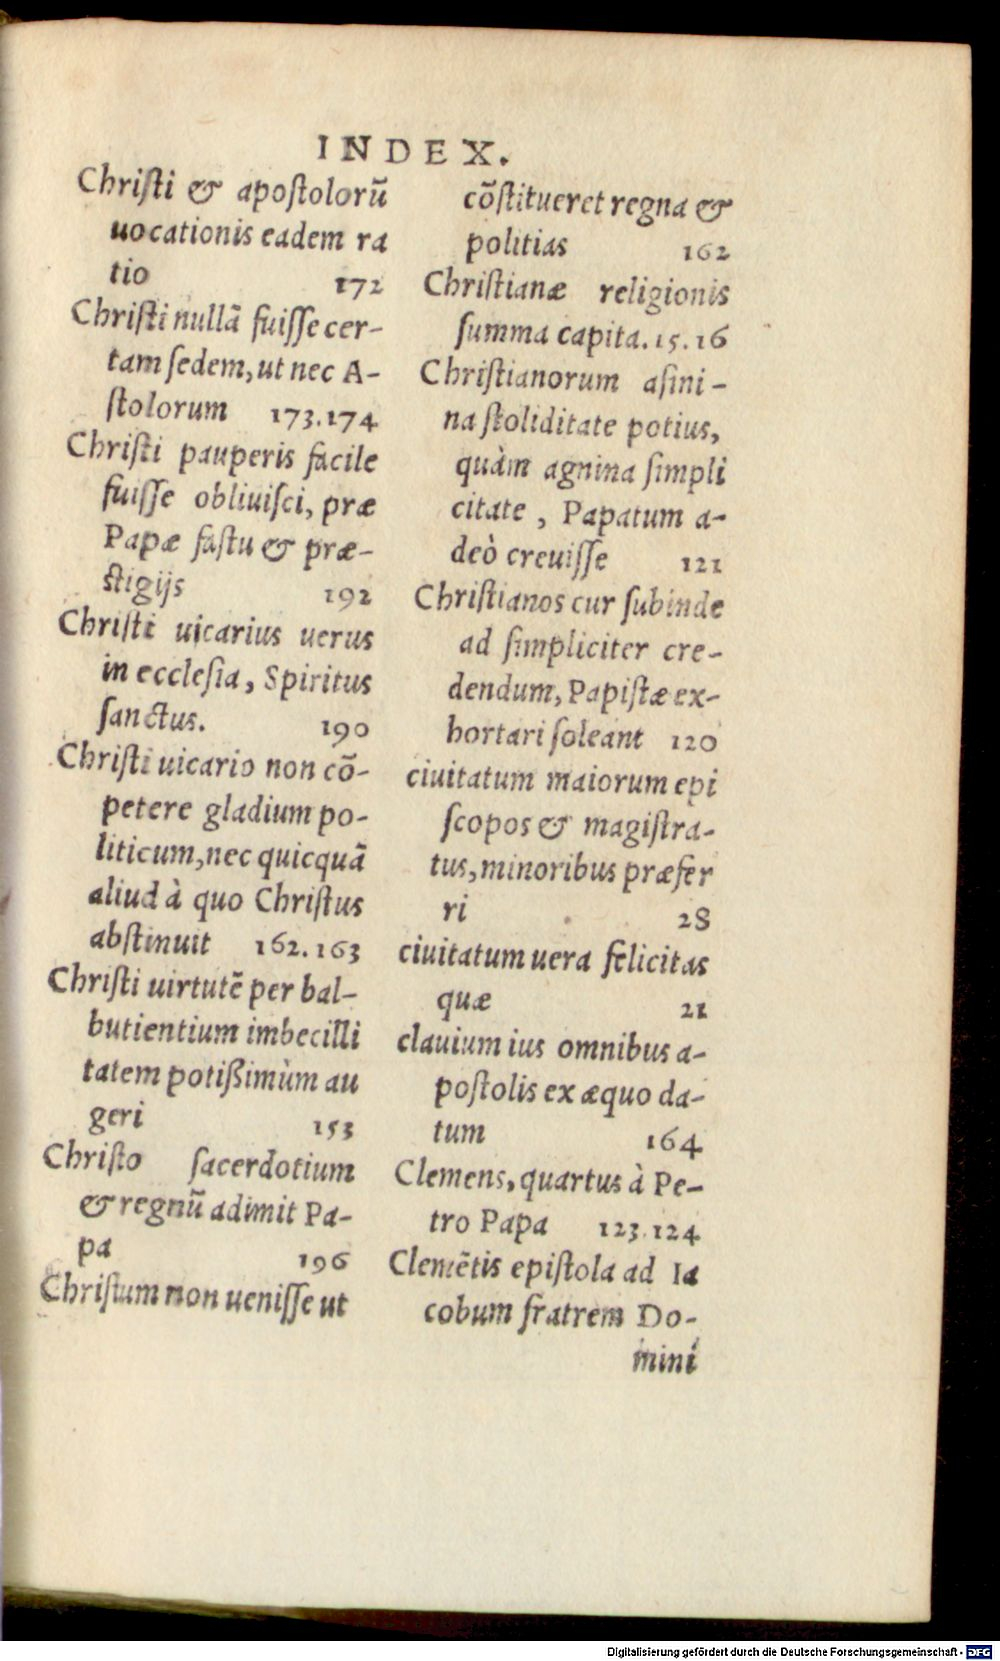 INDEX.
Chriſti & apoſtolorū
uocationis eadem ra
tio 172
Chriſti nullā fuiſſe cer-
tam ſedem, ut nec A-
ſtolorum 173.174
Chriſti pauperis facile
fuiſſe obliuiſci, præ
Papæ faſtu & præ-
ſtigijs 192
Chriſti uicarius uerus
in eccleſia, Spiritus
ſanctus. 190
Chriſti uicario non cō-
petere gladium po-
liticum, nec quicquā
aliud à quo Chriſtus
abſtinuit 162.163
Chriſti uirtutē per bal-
butientium imbecilli
tatem potißimùm au
geri 153
Chriſto ſacerdotium
& regnū adimit Pa-
pa 196
Chriſtum non ueniſſe ut
cōſtitueret regna &
politias 162
Chriſtianæ religionis
ſumma capita. 15.16
Chriſtianorum aſini-
na ſtoliditate potius,
quàm agnina ſimpli
citate, Papatum a-
deò creuiſſe 121
Chriſtianos cur ſubinde
ad ſimpliciter cre-
dendum, Papiſtæ ex-
hortari ſoleant 120
ciuitatum maiorum epi
ſcopos & magiſtra-
tus, minoribus præfer
ri 28
ciuitatum uera felicitas
quæ 21
clauium ius omnibus a-
poſtolis ex æquo da-
tum 164
Clemens, quartus à Pe-
tro Papa 123.124
Clemētis epiſtola ad Ia
cobum fratrem Do-
mini
Digitalisierung gefördert durch die Deutsche Forschungsgemeinschaft - DFG